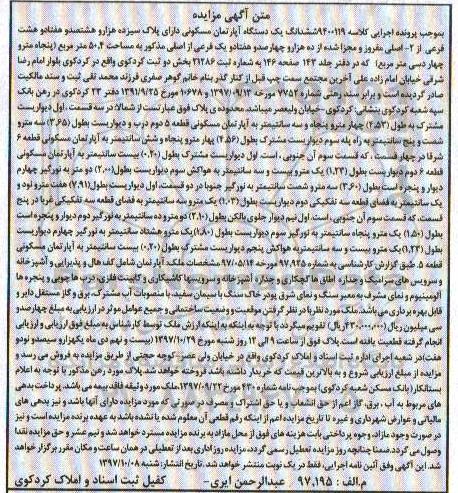 متن آگهی مزایده
بموجب پرونده اجرایی کلاسه ۹۴۰۰۱۱۹ ششدانگ یک دستگاه آپارتمان مسکونی دارای پلاک سیزده هزار و هشتصد و هفتاد و هشت
فرعی از ۲- اصلی مفروز و مجزا شده از ده هزار و چهارصد و هفتاد و یک فرعی از اصلی مذکور به مساحت ۵۰.۴ متر مربع (پنجاه مترو
چهار دسی متر مربع) که در دفتر جلد ۱۴۳ صفحه ۱۴۶ به شماره ثبت ۲۱۲۸۶ بخش دو ثبت کردکوی واقع در کردکوی بلوار امام رضا
شرقی خیابان امام زاده علی آخرین مجتمع سمت چپ قبل از کنار گذر بنام خانم گوهر صفری فرزند محمد تقی ثبت و سند مالکیت
صادر گردیده است و برابر سند رهنی شماره ۷۷۵۲ مورخه ۱۳۹۷/۰۹/۱۳ و ۱۰۶۷۸ مورخ ۱۳۹۱/۹/۲۵ دفتر ۲۳ کردکوی در رهن بانک
سپه شعبه کردکوی بنشانی: کردکوی - خیابان ولیعصر میباشد. محدوده ی پلاک فوق عبارتست از شمالا: در سه قسمت، اول دیواریست
مشترک به طول (۴.۵۳) چهار متر و پنجاه و سه سانتیمتر به آپارتمان مسکونی قطعه ۵ دوم درب و دیواریست بطول (۳.۶۵) سه متر و
شصت و پنج سانتیمتر به راه پله سوم دیواریست مشترک بطول (۴.۵۶) چهار متر و پنجاه و شش سانتیمتر به آپارتمان مسکونی قطعه ۶
شرقا: در چهار قسمت، که قسمت سوم آن جنوبی، است. اول دیواریست مشترک بطول (۰.۲۰) بیست سانتیمتر به آپارتمان مسکونی
قطعه ۶ دوم دیواریست بطول (۱.۲۳) یک متر و بیست و سه سانتیمتر به هواکش سوم دیواریست بطول (۲.۰۰) دو متر به نورگیر چهارم
دیوار و پنجره است بطول (۳.۶۰) سه متر و شصت سانتیمتر به نورگیر جنوبا در دو قسمت، اول دیواریست بطول (۷.۹۱) هفت متر و نود و
یک سانتیمتر به فضای قطعه سه تفکیکی دوم دیواریست بطول (۱.۰۳) یک متر و سه سانتیمتر به فضای قطعه سه تفکیکی غربا در پنج
قسمت، که قسمت سوم آن جنوبی، است. اول نیم دیوار جلوی بالکن بطول (۲.۱۰) دو متر و ده سانتیمتر به نورگیر دوم دیوار و پنجره است
بطول (۱.۵۰) یک متر و پنجاه سانتیمتر به نورگیر سوم دیواریست بطول (۱.۸۰) یک متر و هشتاد سانتیمتر به نورگیر چهارم دیواریست
بطول (۱.۲۳) یک متر و بیست و سه سانتیمتر به هواکش پنجم دیواریست مشترک بطول (۰.۲۰) بیست سانتیمتر به آپارتمان مسکونی
قطعه ۵. طبق گزارش کارشناسی به شماره ۹۷.۹۲۵ مورخه ۹۷/۰۵/۱۴ مشخصات ملک: آپارتمان شامل کف هال و پذیرایی و آشپزخانه
و سرویس های سرامیک و جداره اطاق ها گچکاری و جداره آشپزخانه و سرویسها کاشیکاری و کابینت فلزی، درب ها چوبی و پنجره ها
آلومینیوم و نمای مشرف به معبر سنگ و نمای شرق پودر خاک سنگ با سیمان سفید، با منصوبات آب مشترک، برق و گاز مستقل دایر و
قابل بهره برداری می باشد. ملک مورد نظر با در نظر گرفتن موقعیت و وضعیت ساختمانی و جمیع عوامل موثر در ارزیابی به مبلغ چهارصد و
سی میلیون ریال (۴۳۰،۰۰۰،۰۰۰ ریال) تقویم میگردد با توجه به اینکه به اینکه ارزش ملک توسط کارشناس به مبلغ فوق ارزیابی و ارزیابی
انجام گرفته قطعیت یافته است. پلاک فوق از ساعت ۹ الی ۱۲ روز شنبه مورخ ۱۳۹۷/۱۰/۲۹ (بیست و نهم دی ماه یکهزار و سیصد و نود و
هفت) در شعبه اجرای اداره ثبت اسناد و املاک کردکوی واقع در خیابان ولی عصر، کوچه حجتی از طریق مزایده به فروش می رسد و
مزایده از مبلغ ارزیابی شروع و به بالاترین قیمت که خریدار داشته باشد فروخته خواهد شد. پلاک مورد رهن مذکور با توجه به اعلام
بستانکار (بانک مسکن شعبه کردکوی) بموجب نامه شماره ۴۳۰ مورخ ۱۳۹۷/۰۹/۲۲ ملک مورد وثیقه فاقد بیمه می باشد. پرداخت بدهی
های مربوط به آب، برق، گاز اعم از حق انشعاب و یا حق اشتراک و مصرف در صورتی که مورد مزایده دارای آنها باشد و نیز بدهی های
مالیاتی و عوارض شهرداری و غیره تا تاریخ مزایده اعم از اینکه رقم قطعی آن معلوم شده یا نشده باشد به عهده برنده مزایده است و نیز
در صورت وجود مازاد، وجوه پرداختی بابت هزینه های فوق از محل مازاد به برنده مزایده مسترد خواهد شد و نیم عشر و حق مزایده نقدا
وصول می گردد. ضمنا چنانچه روز مزایده تعطیل رسمی گردد، مزایده روز اداری بعد از تعطیلی در همان ساعت و مکان مقرر برگزار خواهد
شد. این آگهی وفق آئین نامه اجرایی، فقط در یک نوبت منتشر خواهد شد. تاریخ انتشار: شنبه ۱۳۹۷/۱۰/۰۸
م.الف: ۹۷.۱۹۵ عبدالرحمن ایری- کفیل ثبت اسناد و املاک کردکوی